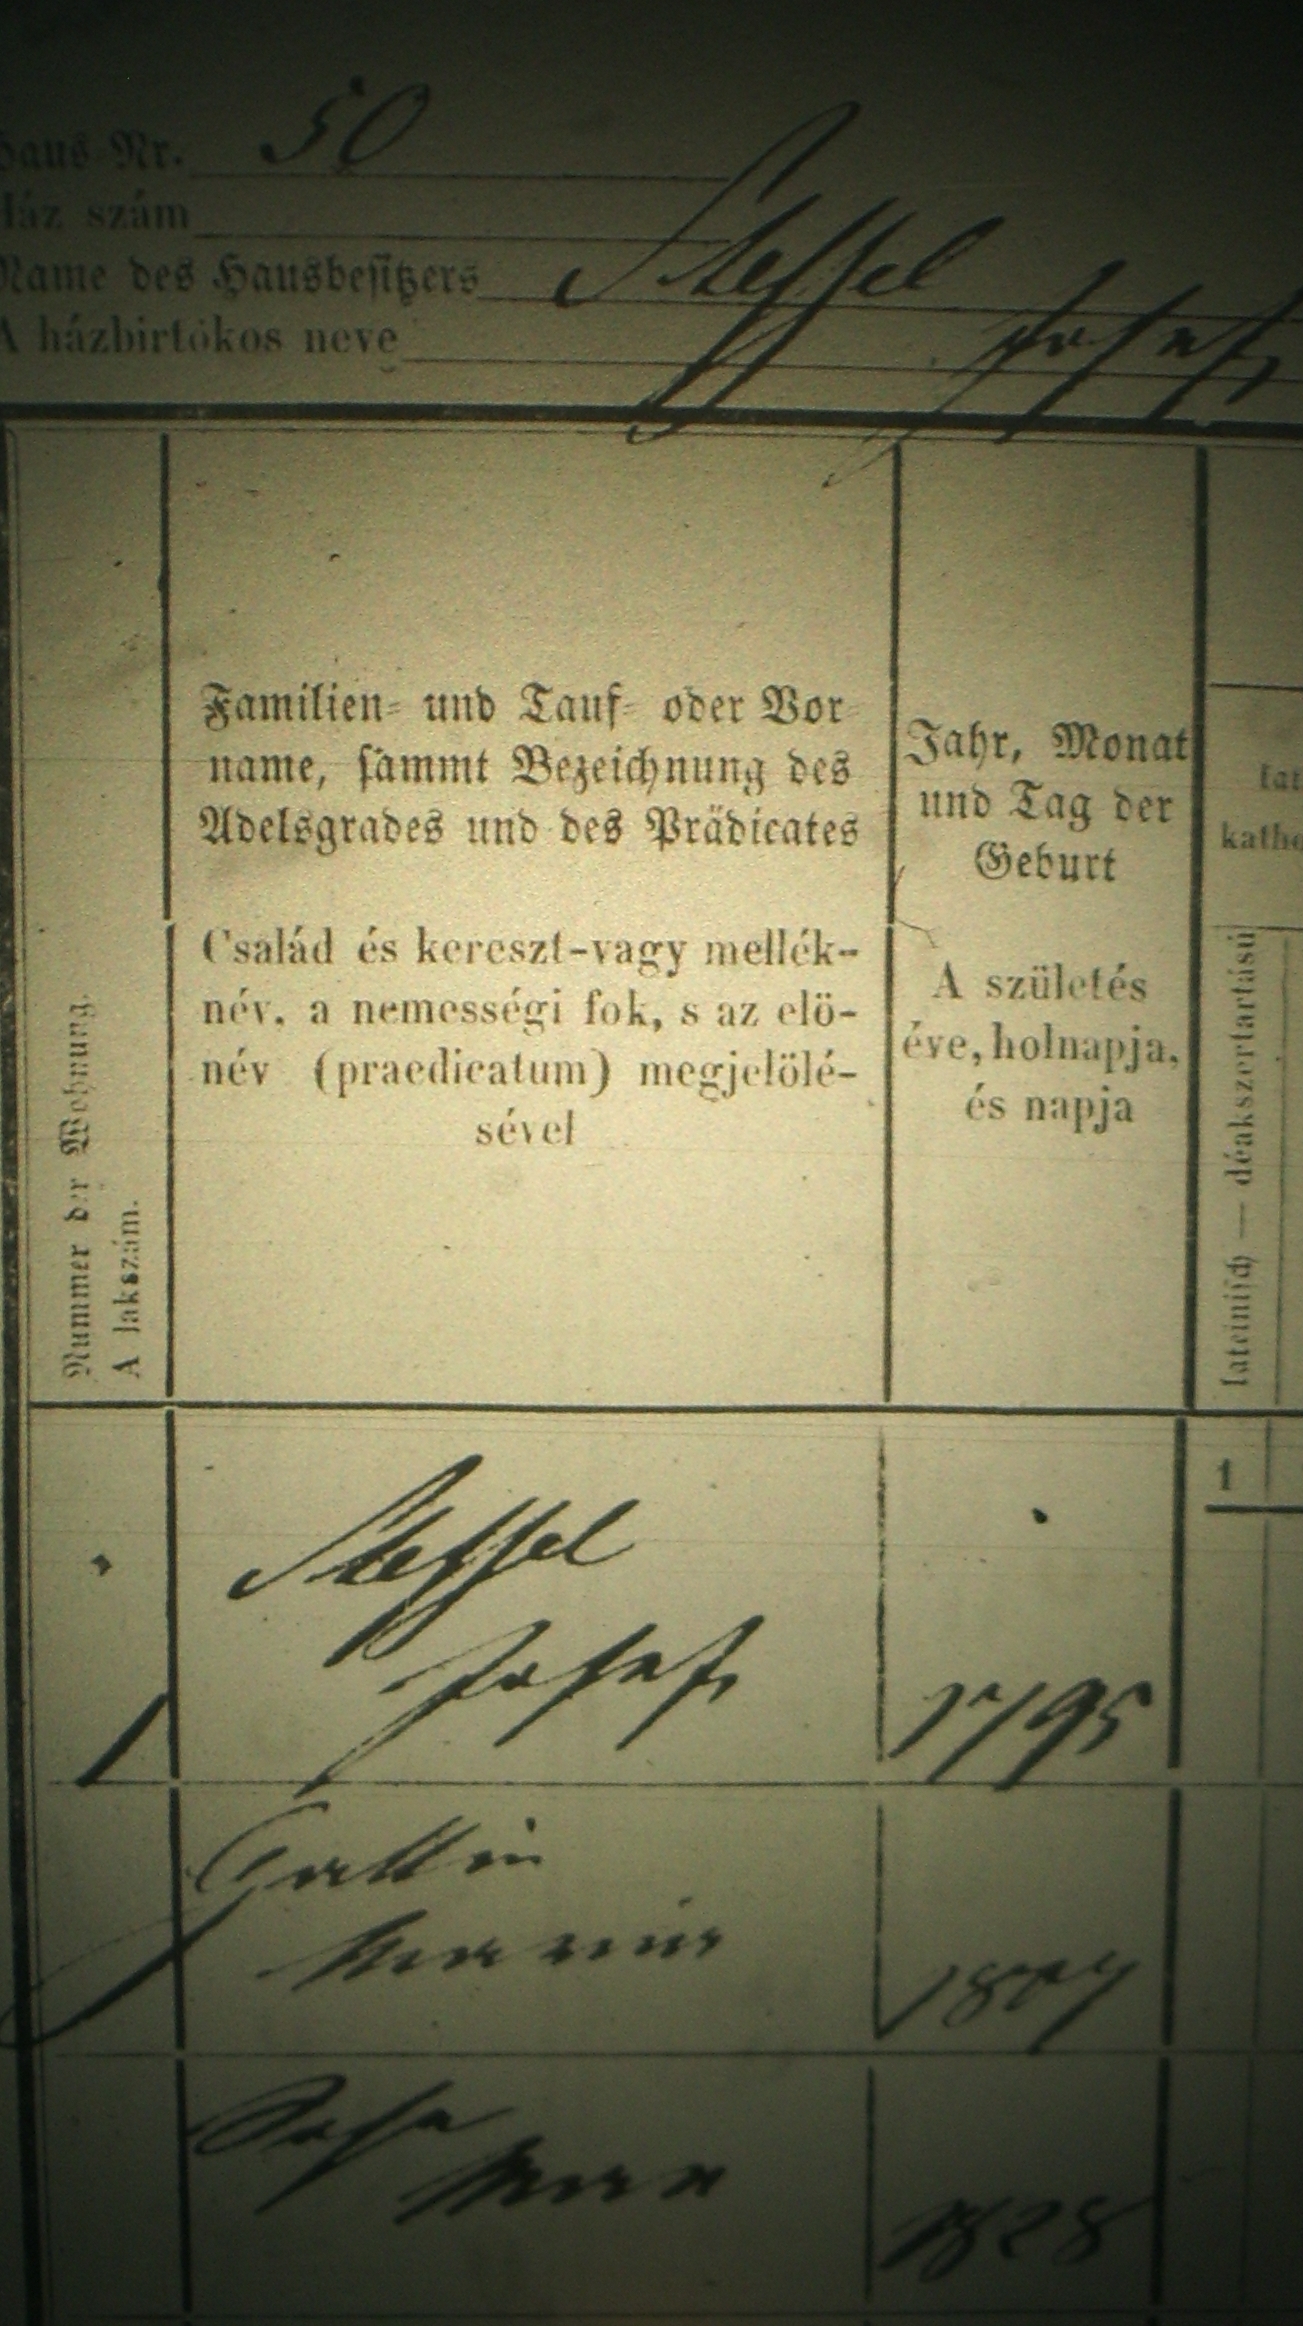 Haus Nr. 50
Ház szám
Name des Hausbesitzers Steffel
A házbirtokos neve Josef,
Nummer der Wohnung.
A lakszám.
Familien- und Tauf- oder Vor
name, sammt Bezeichnung des
Adelsgrades und des Prädicates
Család és kereszt-vagy mellék-
név, a nemességi fok, s az elö-
név (praedicatum) megjelölé-
sével
Jahr, Monat
und Tag der
Geburt
A születés
éve, holnapja,
és napja
lateinisch — déakszertartású
1
Steffel
Josef,
1795
1
Gattin
Maria
1807
Sohn
1828